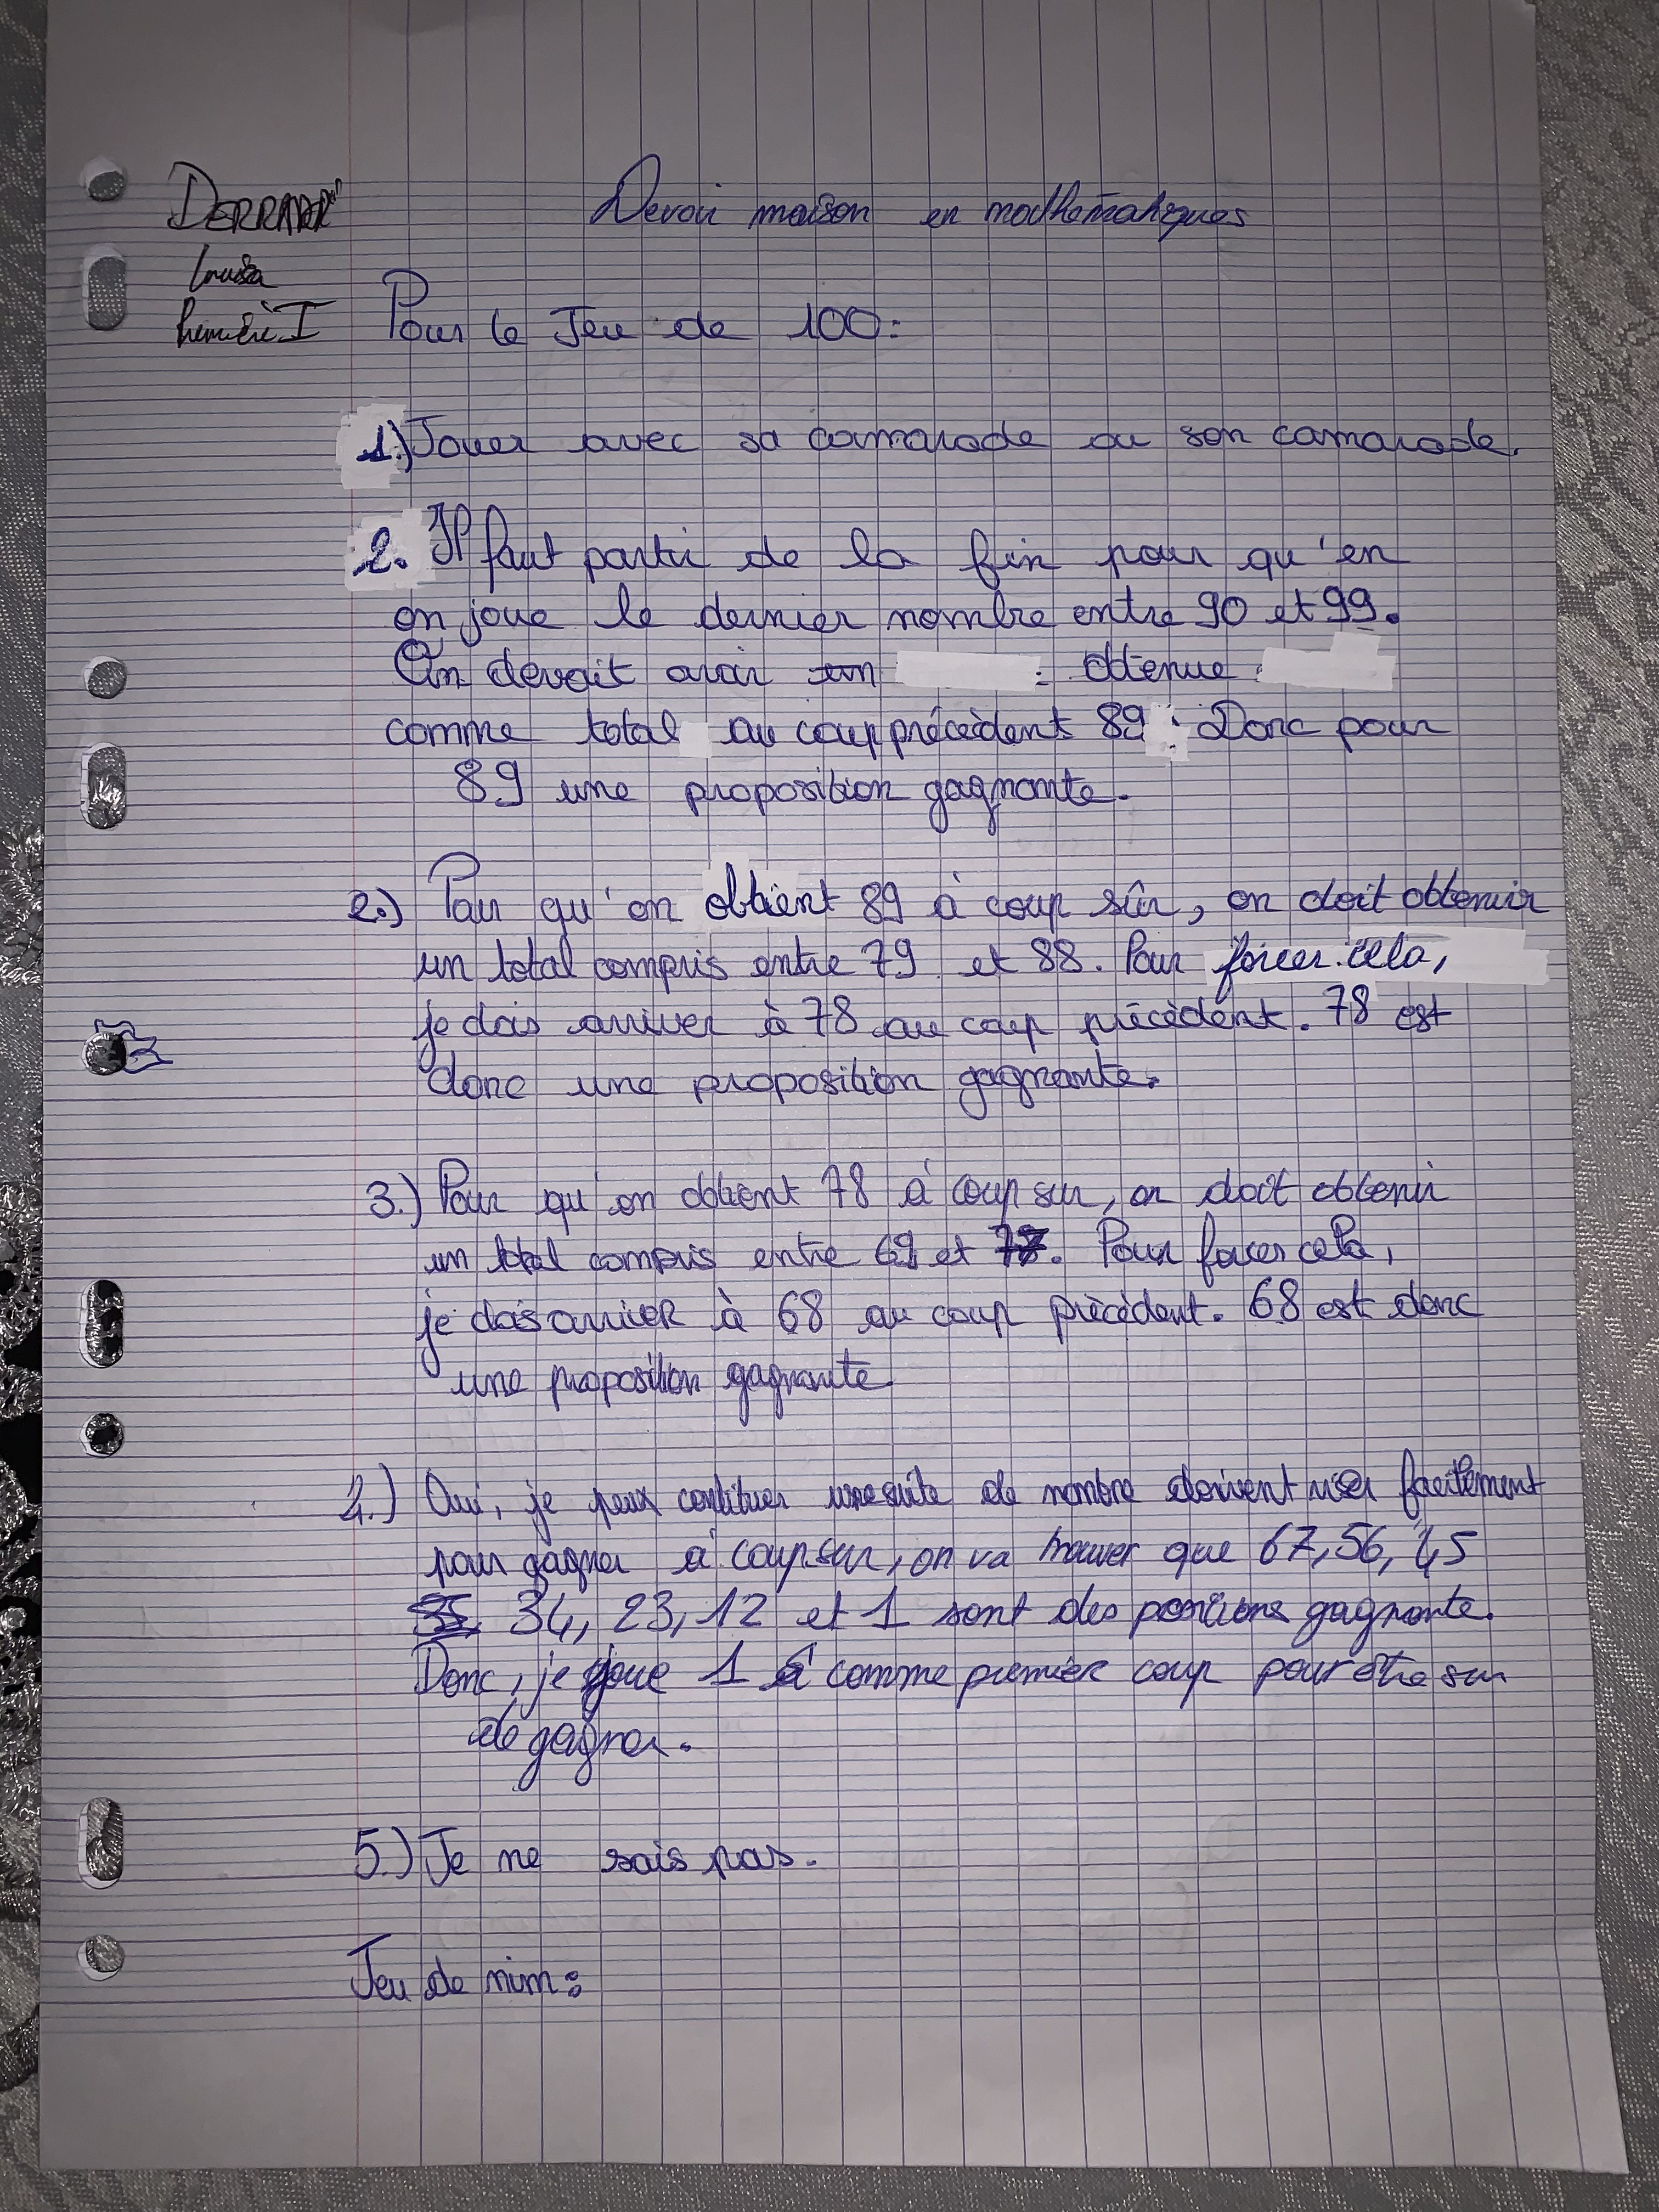 DERRADR
Devoir maison en mathématiques
Louisa
Première I
Pour le Jeu de 100:
1.) Jouer avec sa camarade ou son camarade.
2. Il faut partir de la fin pour qu'en
on joue le dernier nombre entre 90 et 99.
On devait avoir un : obtenue
comme total au coup précèdent 89. Donc pour
89 une proposition gagnante.
2.) Pour qu'on obtient 89 à coup sûr, on doit obtenir
un total compris entre 79 et 88. Pour forcer cela,
je dois arriver à 78 au coup précèdent. 78 est
donc une proposition gagnante.
3.) Pour qu'on obtient 78 à coup sur, on doit obtenir
un total compris entre 69 et 77. Pour forcer cela,
je dois arriver à 68 au coup précèdent. 68 est donc
une proposition gagnante
4.) Oui, je peux une suite de nombre doivent viser facilement
pour gagner à coup sur, on va trouver que 67, 56, 45
35, 34, 23, 12 et 1 sont des gagnante.
Donc, je joue 1 comme premier coup pour être sur
de gagner.
5.) Je ne sais pas.
Jeu de nim: